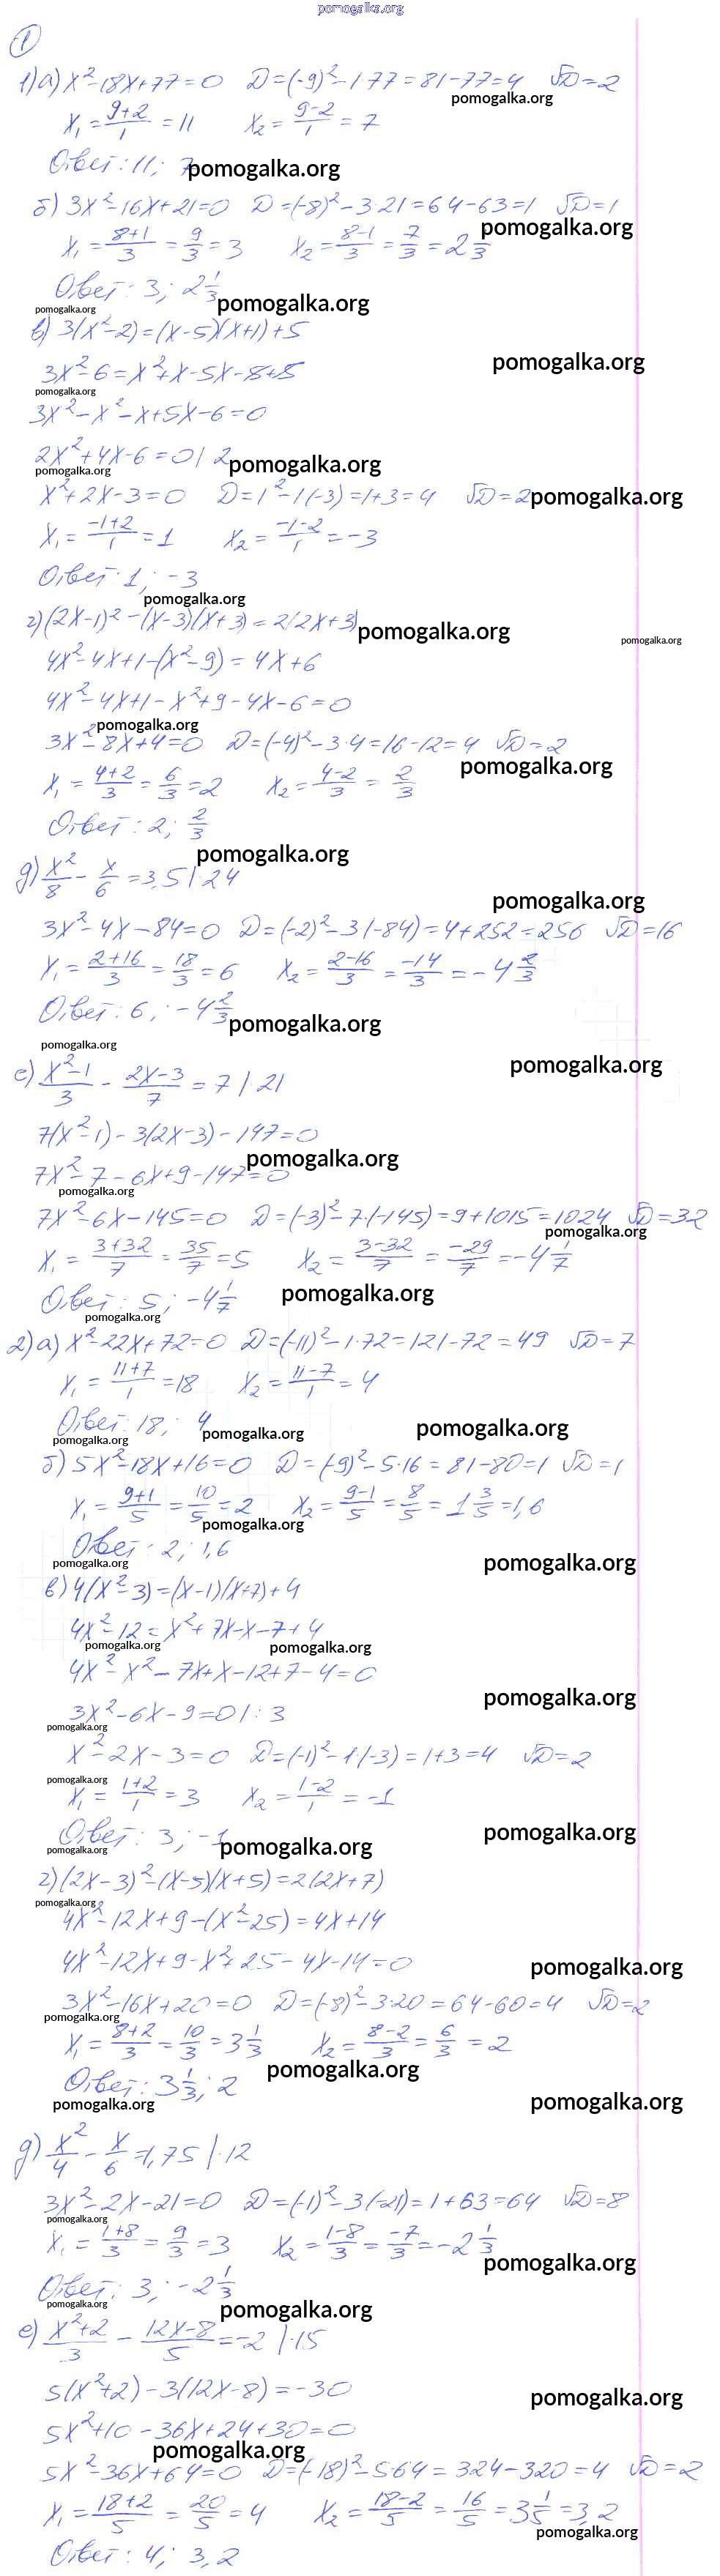 pomogalka.org
1
1) а) x²-18x+77=0 D=(-9)²-1·77=81-77=4 √D=2
pomogalka.org
x₁=(9+2)/1=11 x₂=(9-2)/1=7
Ответ: 11; 7
pomogalka.org
б) 3x²-16x+21=0 D=(-8)²-3·21=64-63=1 √D=1
pomogalka.org
x₁=(8+1)/3=9/3=3 x₂=(8-1)/3=7/3=2 1/3
Ответ: 3; 2 1/3
pomogalka.org
pomogalka.org
в) 3(x²-2)=(x-5)(x+1)+5
pomogalka.org
3x²-6=x²+x-5x-5+5
pomogalka.org
3x²-x²-x+5x-6=0
2x²+4x-6=0 | 2
pomogalka.org
pomogalka.org
x²+2x-3=0 D=1²-1(-3)=1+3=4 √D=2
pomogalka.org
x₁=(-1+2)/1=1 x₂=(-1-2)/1=-3
Ответ: 1; -3
pomogalka.org
г) (2x-1)²-(x-3)(x+3)=2(2x+3)
pomogalka.org
pomogalka.org
4x²-4x+1-(x²-9)=4x+6
4x²-4x+1-x²+9-4x-6=0
pomogalka.org
3x²-8x+4=0 D=(-4)²-3·4=16-12=4 √D=2
pomogalka.org
x₁=(4+2)/3=6/3=2 x₂=(4-2)/3=2/3
Ответ: 2; 2/3
pomogalka.org
д) x²/8-x/6=3,5 |·24
pomogalka.org
3x²-4x-84=0 D=(-2)²-3(-84)=4+252=256 √D=16
x₁=(2+16)/3=18/3=6 x₂=(2-16)/3=-14/3=-4 2/3
Ответ: 6; -4 2/3
pomogalka.org
pomogalka.org
pomogalka.org
е) (x²-1)/3-(2x-3)/7=7 | 21
7(x²-1)-3(2x-3)-147=0
pomogalka.org
7x²-7-6x+9-147=0
pomogalka.org
7x²-6x-145=0 D=(-3)²-7·(-145)=9+1015=1024 √D=32
pomogalka.org
x₁=(3+32)/7=35/7=5 x₂=(3-32)/7=-29/7=-4 1/7
Ответ: 5; -4 1/7
pomogalka.org
pomogalka.org
2) а) x²-22x+72=0 D=(-11)²-1·72=121-72=49 √D=7
x₁=(11+7)/1=18 x₂=(11-7)/1=4
Ответ: 18; 4
pomogalka.org
pomogalka.org
pomogalka.org
б) 5x²-18x+16=0 D=(-9)²-5·16=81-80=1 √D=1
x₁=(9+1)/5=10/5=2 x₂=(9-1)/5=8/5=1 3/5=1,6
pomogalka.org
Ответ: 2; 1,6
pomogalka.org
pomogalka.org
в) 4(x²-3)=(x-1)(x+7)+4
4x²-12=x²+7x-x-7+4
pomogalka.org
pomogalka.org
4x²-x²-7x+x-12+7-4=0
pomogalka.org
3x²-6x-9=0 |:3
pomogalka.org
x²-2x-3=0 D=(-1)²-1·(-3)=1+3=4 √D=2
pomogalka.org
x₁=(1+2)/1=3 x₂=(1-2)/1=-1
Ответ: 3; -1
pomogalka.org
pomogalka.org
pomogalka.org
г) (2x-3)²-(x-5)(x+5)=2(2x+7)
pomogalka.org
4x²-12x+9-(x²-25)=4x+14
4x²-12x+9-x²+25-4x-14=0
pomogalka.org
3x²-16x+20=0 D=(-8)²-3·20=64-60=4 √D=2
pomogalka.org
x₁=(8+2)/3=10/3=3 1/3 x₂=(8-2)/3=6/3=2
Ответ: 3 1/3; 2
pomogalka.org
pomogalka.org
pomogalka.org
д) x²/4-x/6=1,75 |·12
3x²-2x-21=0 D=(-1)²-3(-21)=1+63=64 √D=8
pomogalka.org
x₁=(1+8)/3=9/3=3 x₂=(1-8)/3=-7/3=-2 1/3
pomogalka.org
Ответ: 3; -2 1/3
pomogalka.org
pomogalka.org
е) (x²+2)/3-(12x-8)/5=-2 |·15
5(x²+2)-3(12x-8)=-30
pomogalka.org
5x²+10-36x+24+30=0
pomogalka.org
5x²-36x+64=0 D=(-18)²-5·64=324-320=4 √D=2
x₁=(18+2)/5=20/5=4 x₂=(18-2)/5=16/5=3 1/5=3,2
pomogalka.org
Ответ: 4; 3,2